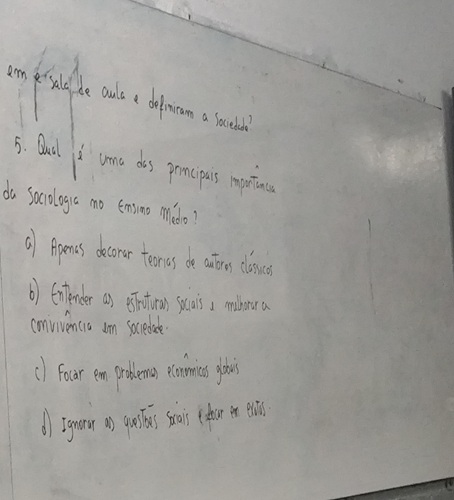 em sala de aula e definiram a sociedade?
5. Qual é uma das principais importância
da sociologia no Ensino médio?
a) Apenas decorar teorias de autores clássicos
b) Entender as estruturas sociais e melhorar a
convivência em sociedade.
c) Focar em problemas econômicos globais
d) Ignorar as questões sociais e focar em